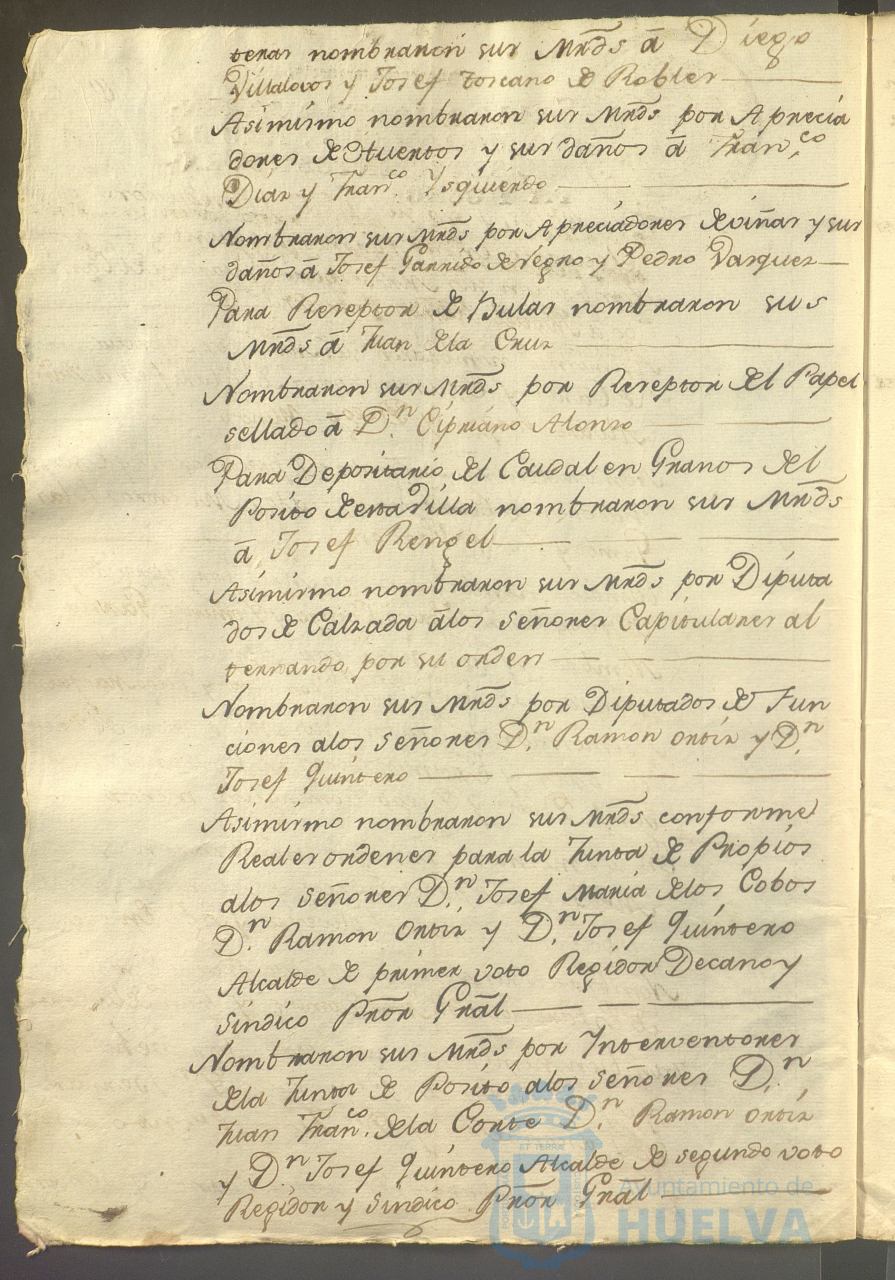 teras nombraron sus Mrds â Diego
Villalovos y Josef Toscano de Robles
Asimismo nombraron sus Mrds por Aprecia
dores de Huertos y sus daños â Fran.co
Diaz y Fran.co Ysquierdo
Nombraron sus Mrds por Apreciadores de viñas y sus
daños â Josef Garrido de Negro y Pedro Vasquez
Para Reseptor de Bulas nombraron sus
Mrds â Juan de la Cruz
Nombraron sus Mrds por Reseptor del Papel
sellado â D.n Cipriano Alonso
Para Depositario del Caudal en Granos del
Posito de esta Villa nombraron sus Mrds
â Josef Rengel
Asimismo nombraron sus Mrds por Diputa
dos de Calzada âlos señores Capitulares al
ternando por su orden
Nombraron sus Mrds por Diputados de Fun
ciones alos señores D.n Ramon Ortiz y D.n
Josef Quintero
Asimismo nombraron sus Mrds conforme
Reales ordenes para la Junta de Propios
alos señores D.n Josef Maria delos Cobos
D.n Ramon Ortiz y D.n Josef Quintero
Alcalde de primer voto Regidor Decano y
Sindico Pror Gral
Nombraron sus Mrds por Interventores
dela Junta de Posito alos señores D.n
Juan Fran.co dela Corte D.n Ramon Ortiz
y D.n Josef Quintero Alcalde de segundo voto
Regidor y Sindico Pror Gral
Ayuntamiento de
HUELVA